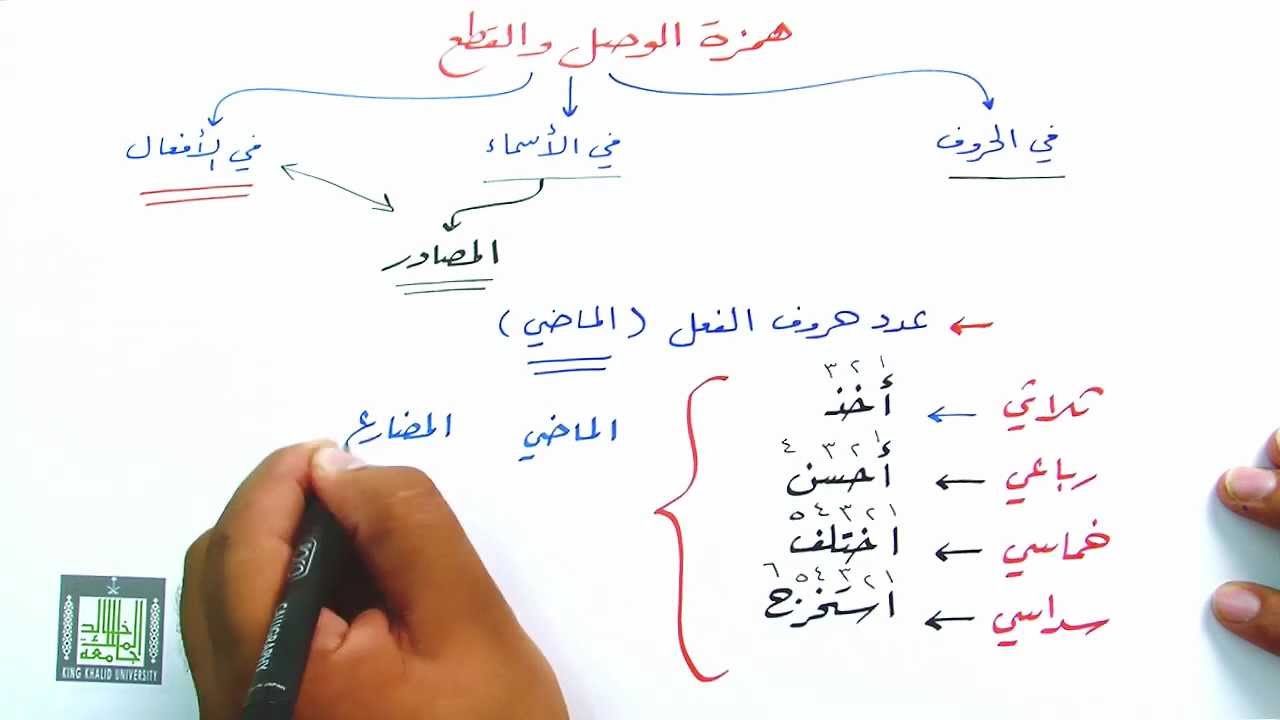 همزة الوصل والقطع
في الحروف في الأسماء في الأفعال
المصادر
← عدد حروف الفعل (الماضي)
١ ٢ ٣
ثلاثي ← أخذ
الماضي المضارع
١ ٢ ٣ ٤
رباعي ← أحسن
١ ٢ ٣ ٤ ٥
خماسي ← اختلف
١ ٢ ٣ ٤ ٥ ٦
سداسي ← استخرج
جامعة الملك خالد
KING KHALID UNIVERSITY